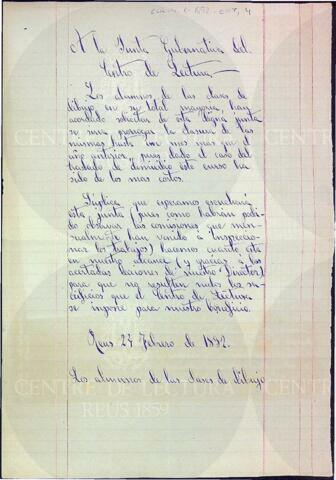 A la Junta Gubernativa del
Centro de Lectura
Los alumnos de las clases de
dibujo en su total mayoria, han
acordado solicitar de esta digna junta
se sirva prorogar la clausura de las
mismas hasta un mes mas que el
año anterior, pues dado el caso del
traslado de domicilio este curso ha
sido de los mas cortos.
Súplica que esperamos
esta junta (pues como habran podi-
do observar las comisiones que men-
sualmente han venido á inspeccio-
nar los trabajos) hacemos cuanto está
en nuestro alcance (y gracias á las
acertadas lecciones de nuestro Director)
para que no resulten nulos los sa-
crificios que el Centro de Lectura
se impone para nuestro beneficio.
Reus 27 Febrero de 1892.
Los alumnos de las clases de dibujo
CENTRE DE LECTURA
REUS 1859